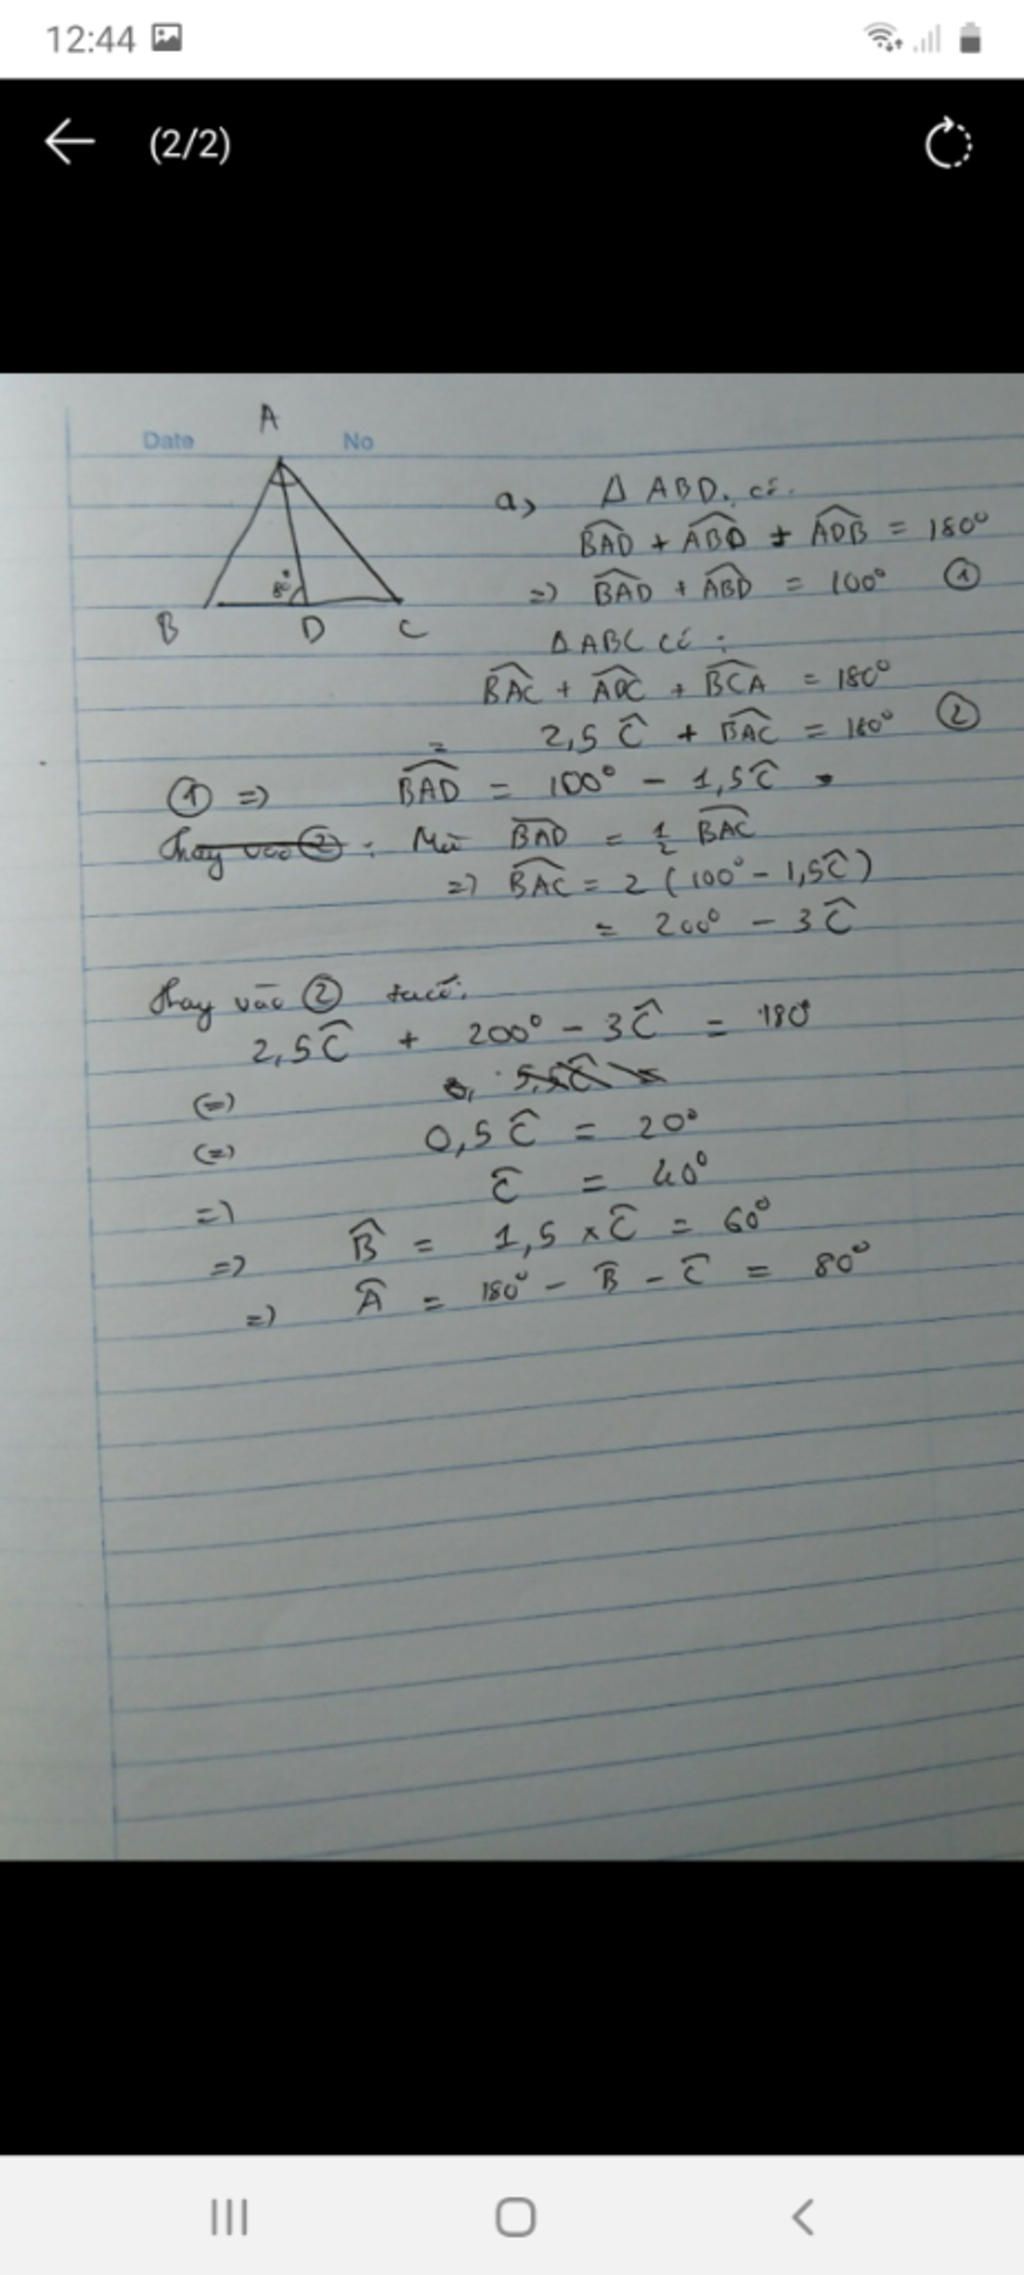 12:44
(2/2)
Date No
A
80°
B D C
a, Δ ABD. có.
BAD + ABD + ADB = 180°
=) BAD + ABD = 100° ①
Δ ABC có :
BAC + ADC + BCA = 180°
= 2,5 C + BAC = 180° ②
① =) BAD = 100° - 1,5C
Thay vào ② : Mà BAD = 1/2 BAC
=) BAC = 2 (100° - 1,5C)
= 200° - 3C
Thay vào ② ta có:
2,5C + 200° - 3C = 180
(=) 5,5C
(=) 0,5C = 20°
=) C = 40°
=) B = 1,5 × C = 60°
=) A = 180° - B - C = 80°